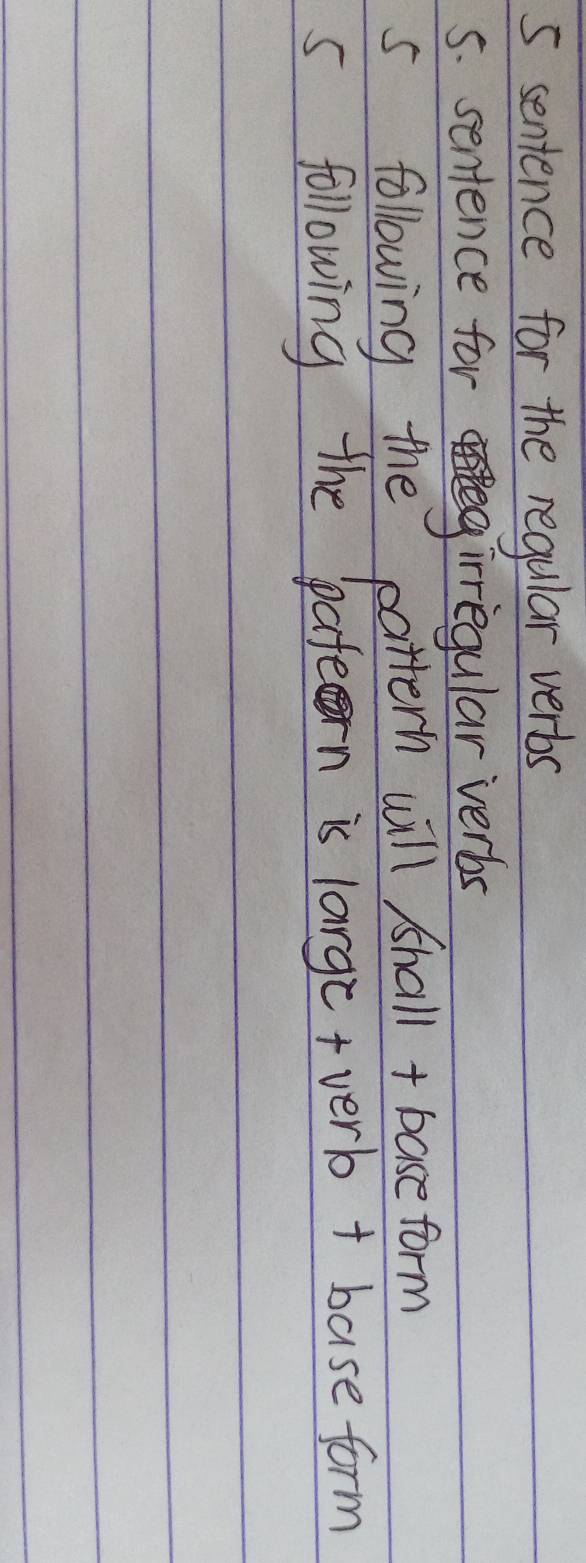 5 sentence for the regular verbs
5. sentence for irregular verbs
5 following the pattern will /shall + base form
5 following the patern is large + verb + base form